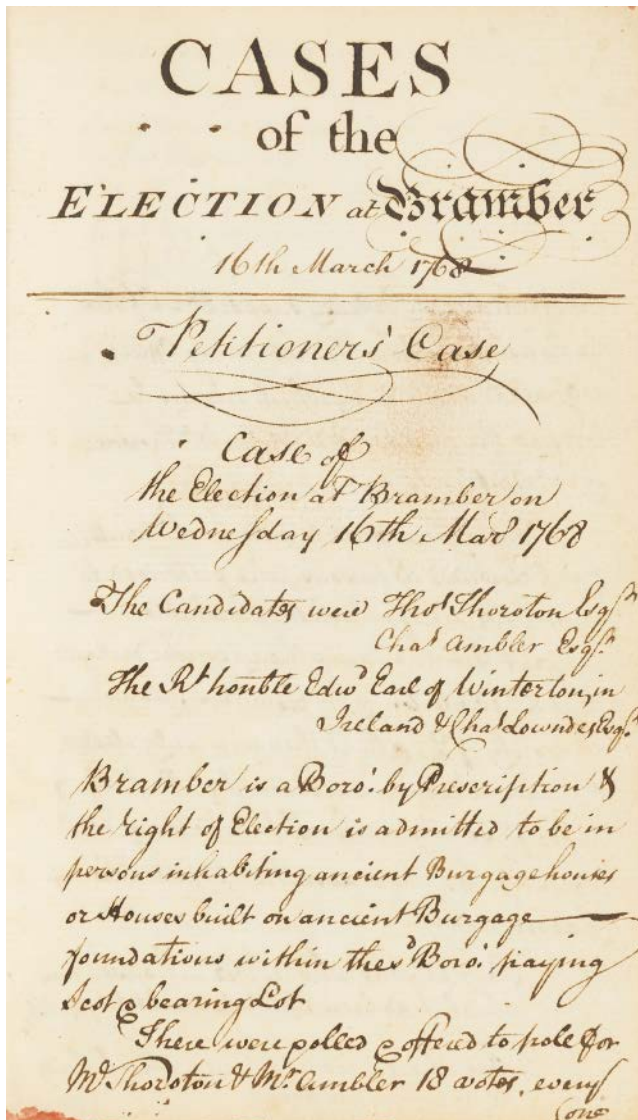 CASES
of the
ELECTION at Bramber
16th March 1768
Petitioners' Case
Case of
the Election at Bramber on
Wednesday 16th Mar 1768
The Candidates were Thos Thoroton Esqr
Chas Ambler Esqr
The Rt honble Edwd Earl of Winterton, in
Ireland & Chas Lowndes, Esqr
Bramber is a Boro: by Prescription &
the right of Election is admitted to be in
persons inhabiting ancient Burgage houses
or Houses built on ancient Burgage
foundations within the sd Boro: paying
Scot & bearing Lot
There were polled & offered to pole for
Mr Thoroton & Mr Ambler 18 votes, every
one